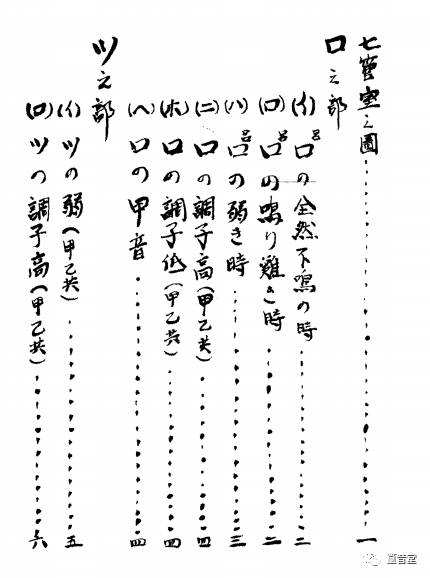 七管室之圖…………一
ロ之部
(イ)ロの全然不鳴の時…………二
(ロ)ロの鳴り難き時…………二
(ハ)ロの弱き時…………三
(ニ)ロの調子高(甲乙共)…………四
(ホ)ロの調子低(甲乙共)…………四
(ヘ)ロの甲音…………四
ツ之部
(イ)ツの弱(甲乙共)…………五
(ロ)ツの調子高(甲乙共)…………六